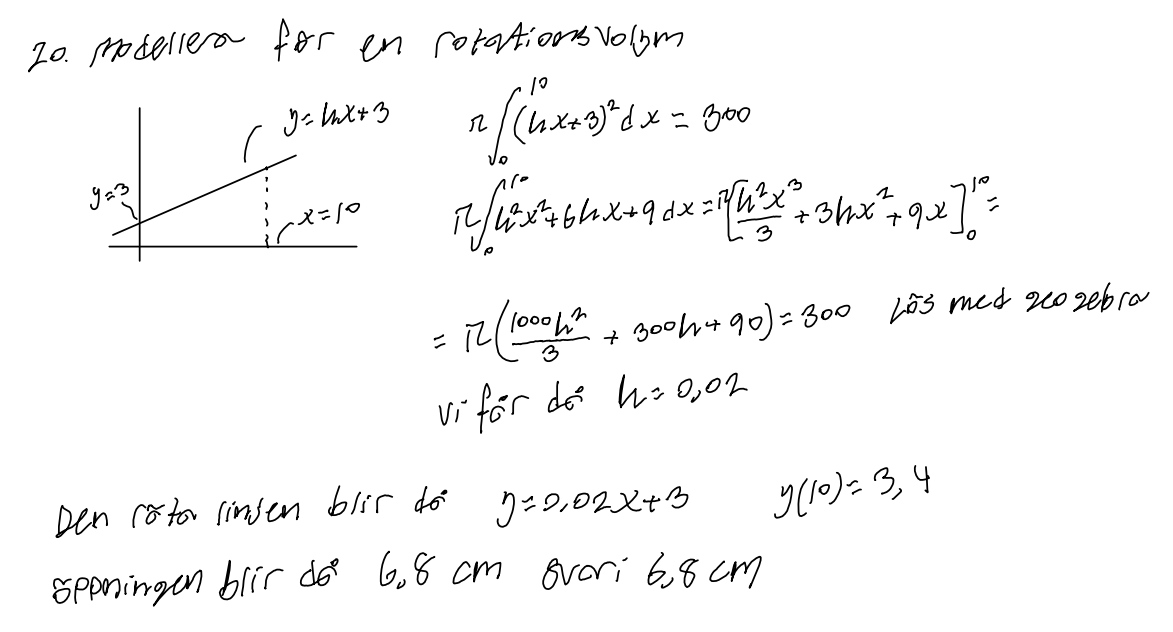 20. Modellera för en rotationsvolym
y=kx+3
y=3
x=10
π∫₀¹⁰(kx+3)²dx = 300
π∫₀¹⁰k²x²+6kx+9dx=π[k²x³/3+3kx²+9x]₀¹⁰=
=π(1000k²/3 + 300k+90)=300 Lös med geogebra
vi får då k=0,02
Den räta linjen blir då y=0,02x+3 y(10)=3,4
öppningen blir då 6,8 cm svar: 6,8 cm